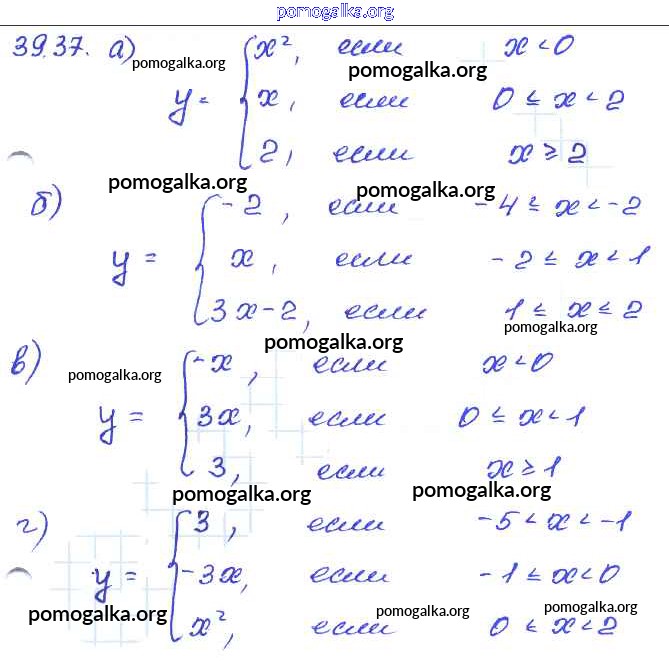 pomogalka.org
39.37. а) x², если x < 0
pomogalka.org pomogalka.org
y = x, если 0 ≤ x < 2
2, если x ≥ 2
pomogalka.org pomogalka.org
б) -2, если -4 ≤ x < -2
y = x, если -2 ≤ x < 1
3x-2, если 1 ≤ x ≤ 2
pomogalka.org
pomogalka.org
в) -x, если x < 0
pomogalka.org
y = 3x, если 0 ≤ x < 1
3, если x ≥ 1
pomogalka.org pomogalka.org
г) 3, если -5 < x < -1
y = -3x, если -1 ≤ x < 0
pomogalka.org pomogalka.org pomogalka.org
x², если 0 ≤ x < 2